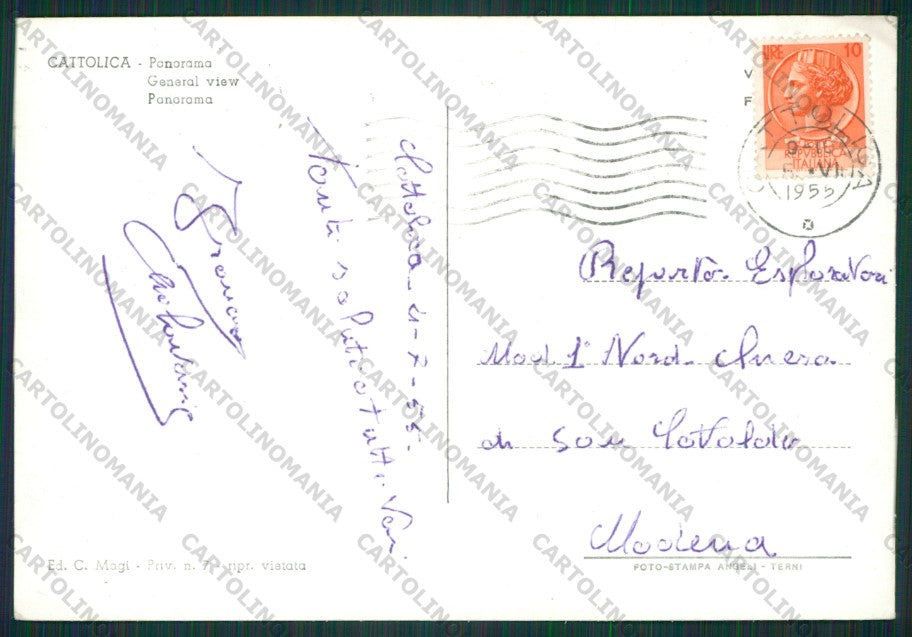 CATTOLICA - Panorama
General view
Panorama
Cattolica - 4-7-55-
Tanti saluti a tutti voi
Franco
LIRE 10
REPUBBLICA
ITALIANA
CATTOLICA
1955
Reparto Esploratori
Mod. 1° Nord - Chiesa
di San Cataldo
Modena
Ed. C. Magi - Priv. n. 7 - ripr. vietata
FOTO-STAMPA ANGELI - TERNI
CARTOLINOMANIA